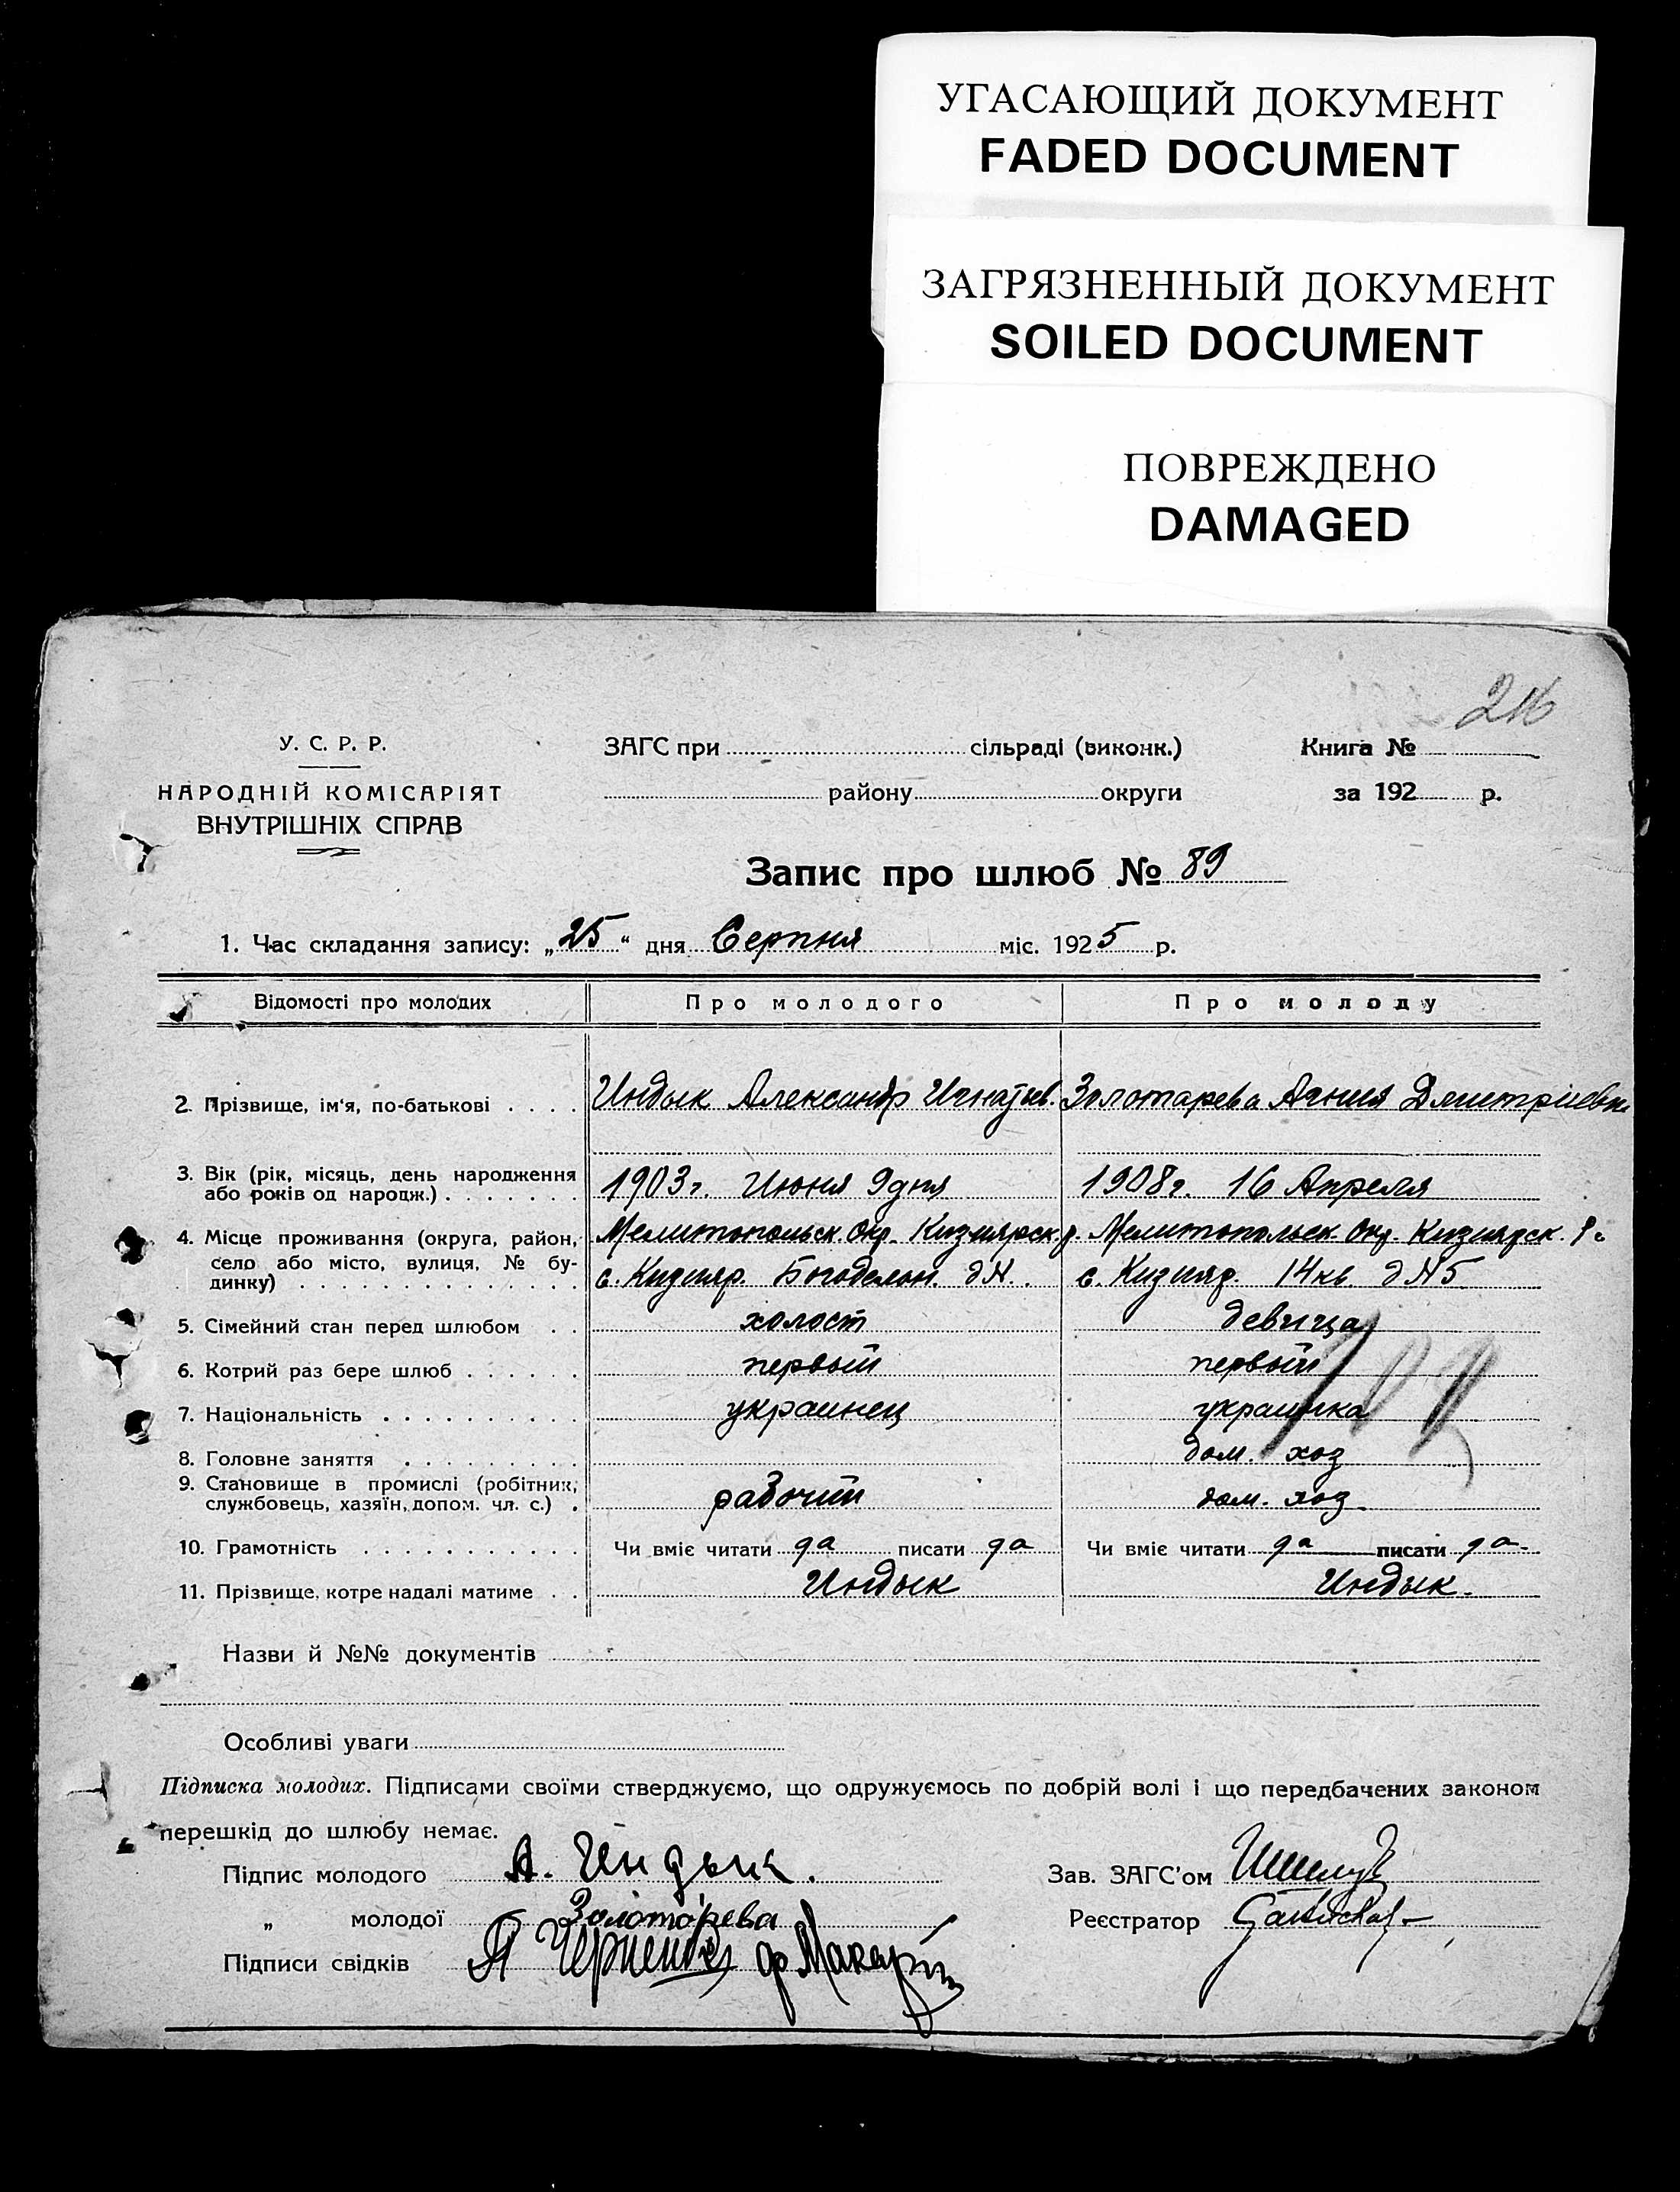 УГАСАЮЩИЙ ДОКУМЕНТ
FADED DOCUMENT
ЗАГРЯЗНЕННЫЙ ДОКУМЕНТ
SOILED DOCUMENT
ПОВРЕЖДЕНО
DAMAGED
У. С. Р. Р.
НАРОДНІЙ КОМІСАРІЯТ
ВНУТРІШНІХ СПРАВ
ЗАГС при сільраді (виконк.)
району округи
Книга №
за 192 р.
Запис про шлюб № 89
1. Час складання запису: „25“ дня Серпня міс. 1925 р.
Відомості про молодих Про молодого Про молоду
2. Прізвище, ім'я, по-батькові Индык Александр Игнатьев. Золотарева Агния Дмитриевн
3. Вік (рік, місяць, день народження
або років од народж.) 1903 г. Июня 9 дня 1908 г. 16 Апреля
4. Місце проживання (округа, район, Мелитопольск. Окр. Кизиярск. р. Мелитопольск. Окр. Кизиярск. р.
село або місто, вулиця, № бу-
динку) с. Кизияр. д № с. Кизияр. 14 кв д № 5
5. Сімейний стан перед шлюбом холост девица
6. Котрий раз бере шлюб первый первый
7. Національність украинец украинка
8. Головне заняття дом. хоз
9. Становище в промислі (робітник,
службовець, хазяїн, допом. чл. с.) рабочий дом. хоз.
10. Грамотність Чи вміє читати да писати да Чи вміє читати да писати да.
11. Прізвище, котре надалі матиме Индык Индык.
Назви й №№ документів
Особливі уваги
Підписка молодих. Підписами своїми стверджуємо, що одружуємось по добрій волі і що передбачених законом
перешкід до шлюбу немає.
Підпис молодого А. Индык.
Зав. ЗАГС'ом
„ молодої Золотарева
Реєстратор
Підписи свідків